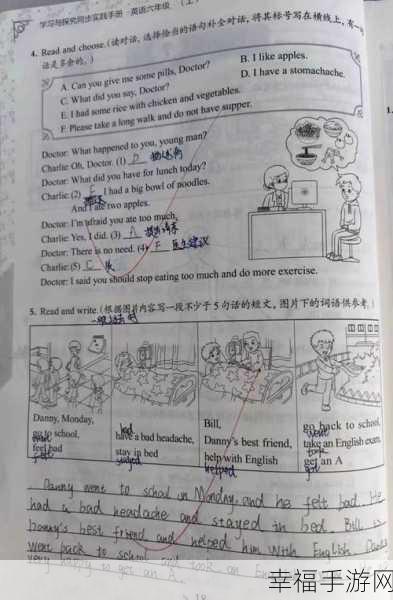 学习与探究同步实践手册·英语六年级（上）
4. Read and choose.(读对话，选择恰当的语句补全对话，将其标号写在横线上，有一
话是多余的。)
A. Can you give me some pills, Doctor?
B. I like apples.
C. What did you say, Doctor?
D. I have a stomachache.
E. I had some rice with chicken and vegetables.
F. Please take a long walk and do not have supper.
Doctor: What happened to you, young man?
Charlie: Oh, Doctor. (1) D
Doctor: What did you have for lunch today?
Charlie: (2) E I had a big bowl of noodles.
And I ate two apples.
Doctor: I'm afraid you ate too much.
Charlie: Yes, I did. (3) A
Doctor: There is no need. (4) F 医生建议
Charlie: (5) C
Doctor: I said you should stop eating too much and do more exercise.
5. Read and write.(根据图片内容写一段不少于5句话的短文，图片下的词语供参考。)
一般过去时
Danny, Monday,
go to school,
went
feel bad
felt
had
have a bad headache,
stay in bed
stayed
Bill,
Danny's best friend,
help with English
helped
go back to school,
went
take an English exam,
took
get an A
got
Danny went to school on Monday, and he felt bad. He
had a bad headache and stayed in bed. Bill is
Danny's best friend and helped him with English. Danny
went back to school and took an
very happy to get an A.
18
幸福手游网